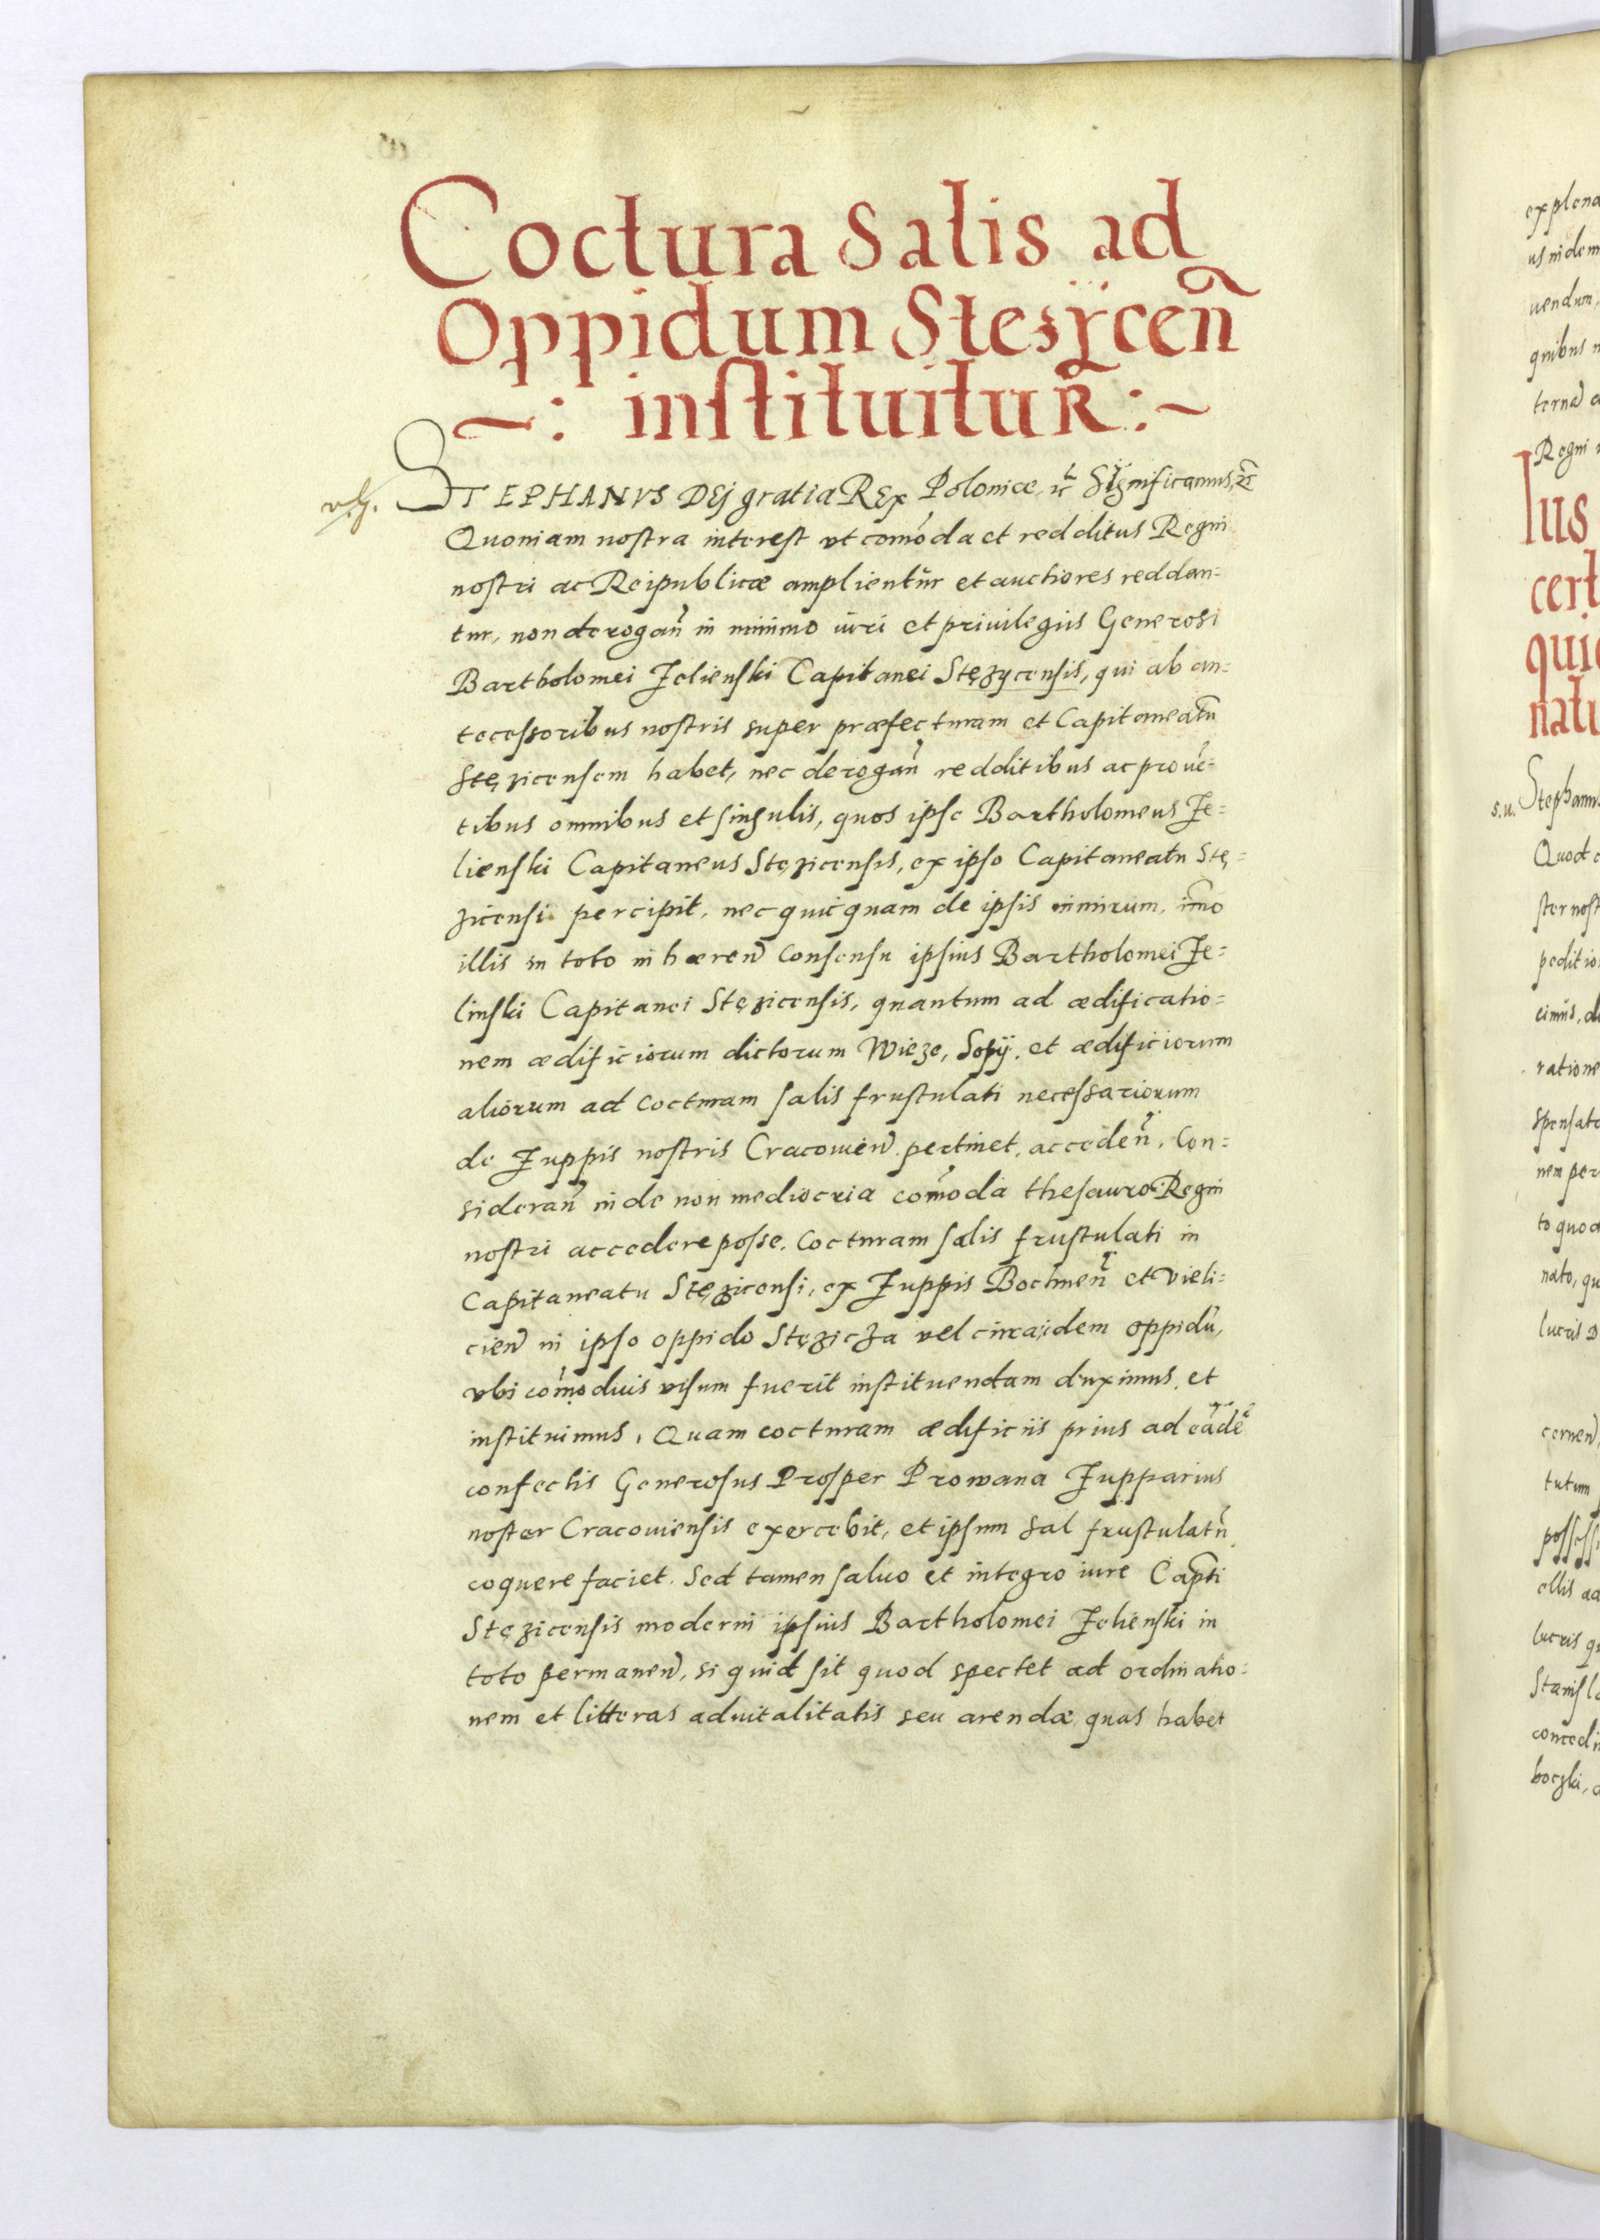 Coctura Salis ad
Oppidum Stesÿcen̄
~: instituitur :~
STEPHANVS DEj gratia REx Poloniæ, &c Significamus, &c
Quoniam nostra interest vt com̄oda et redditus Regni
nostri ac Reipublicæ amplientur et auctiores reddan=
tur, non derogan̄ in minimo iuri et priuilegiis Generosi
Bartholomei Zelienski Capitanei Stęzycensis, qui ab an=
tecessoribus nostris super præfecturam et Capitaneatū
Stęzicensem habet, nec derogan̄ redditibus ac prouē=
tibus omnibus et singulis, quos ipse Bartholomeus Ze=
lienski Capitaneus Stęzicensis, ex ipso Capitaneatu Stę=
zicensi percipit, nec quicquam de ipsis inmirum, im̄o
illis in toto in hæren̄ consensu ipsius Bartholomei Ze=
linski Capitanei Stęzicensis, quantum ad ædificatio=
nem ædificiorum dictorum Wieze, Sopÿ, et ædificiorum
aliorum ad cocturam salis frustulati necessariorum
de Zuppis nostris Cracouien̄ pertinet, acceden̄, Con=
sideran̄ inde non mediocria com̄oda thesauro Regni
nostri accedere posse, Cocturam salis frustulati in
Capitaneatu Stęzicensi, ex Zuppis Bochnen̄ et Vieli=
cien̄ in ipso oppido Stęzicza vel circa idem oppidū,
vbi com̄oduis visum fuerit instituendam duximus, et
instituimus, Quam cocturam ædificiis prius ad eādē
confectis Generosus Prosper Prowana Zupparius
noster Cracouiensis exercebit, et ipsum sal frustulatū
coquere faciet. Sed tamen saluo et integro iure Capti
Stęzicensis moderni ipsius Bartholomei Zelienski in
toto permanen̄, si quid sit quod spectet ad ordinatio=
nem et litteras aduitalitatis seu arendæ quas habet
explena
us indem
uendum,
quibus
tern̄
Regni
Ius
cert
qui
natu
s.u. Stephanus
Quod
ster nost
peditio
cimūs, d
ratione
spensato
nem per
to quod
nato, qu
lucris
cernen̄
tutum
possessi
ellis
lucris
Stanisla
concedi
boczki,